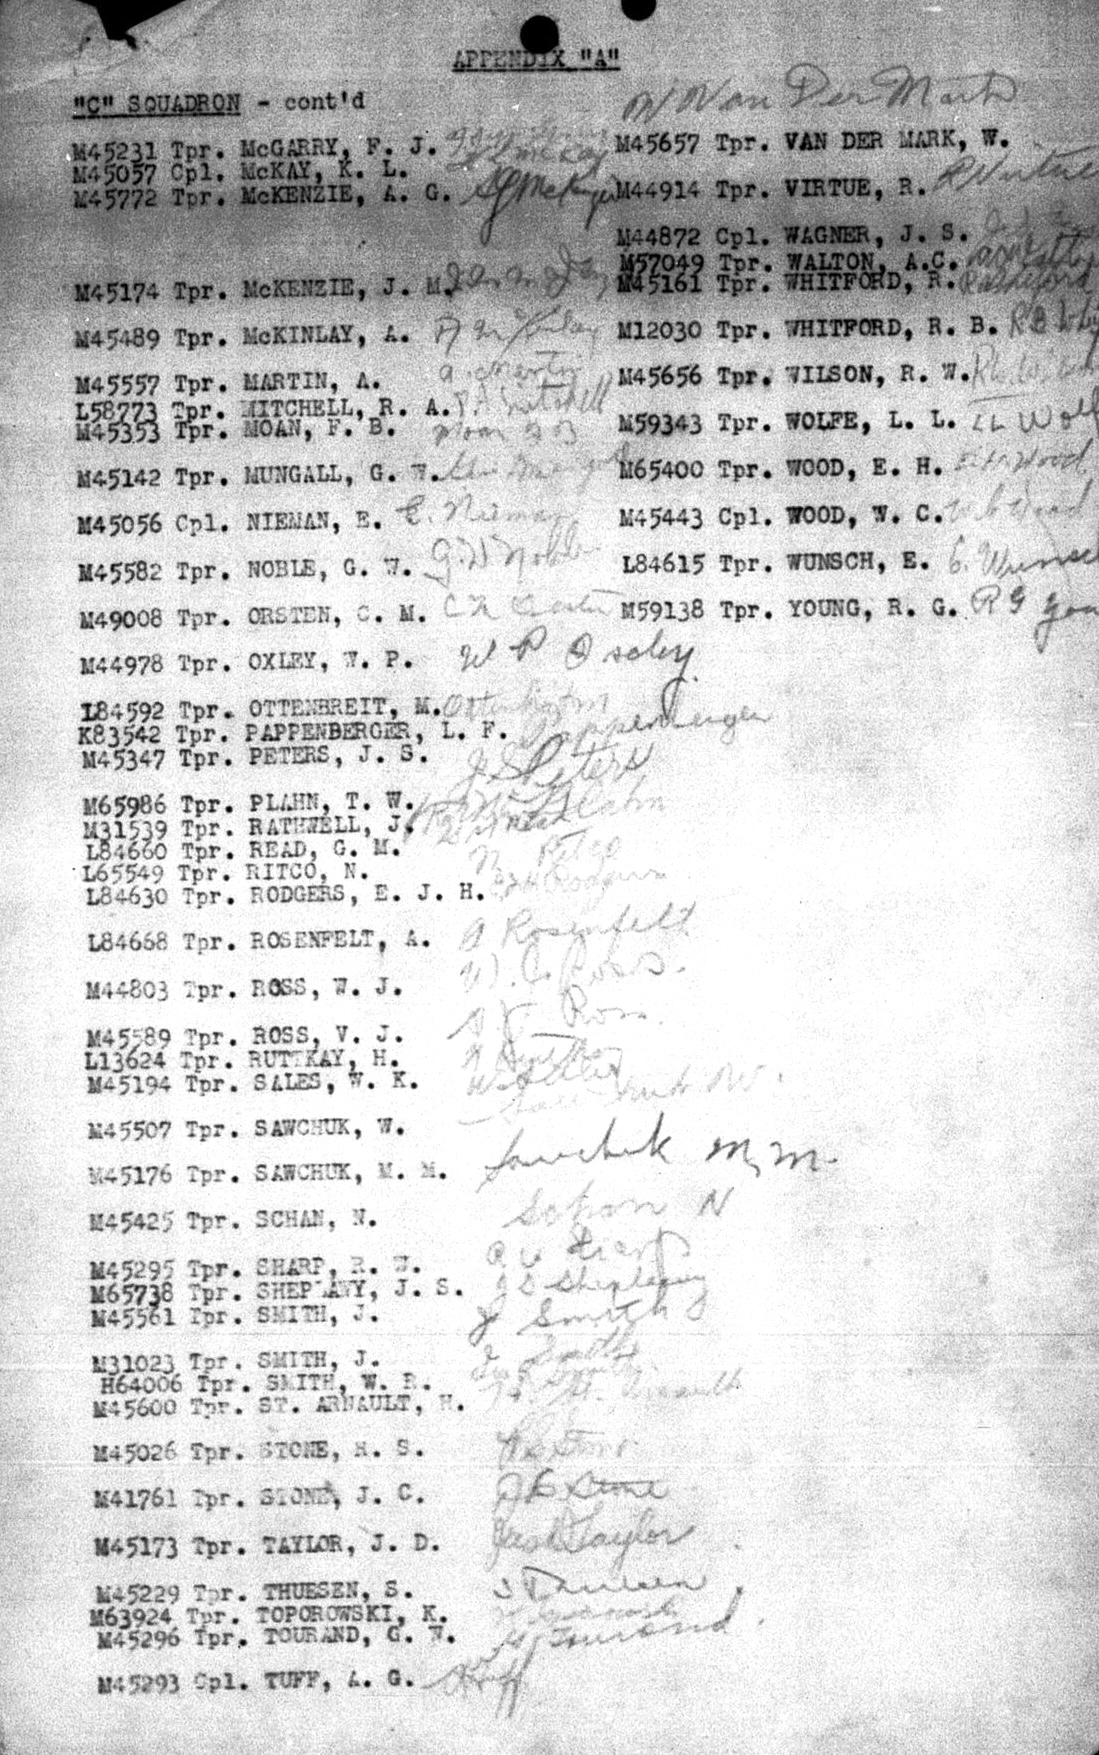 APPENDIX "A"
"C" SQUADRON - cont'd
M45231 Tpr. McGARRY, F. J.
M45057 Cpl. McKAY, K. L. McKay
M45772 Tpr. McKENZIE, A. G. AG McKenzie
M45174 Tpr. McKENZIE, J. M.
M45489 Tpr. McKINLAY, A. A McKinlay
M45557 Tpr. MARTIN, A. A. Martin
L58773 Tpr. MITCHELL, R. A. R A Mitchell
M45353 Tpr. MOAN, F. B. Moan F B
M45142 Tpr. MUNGALL, G. W.
M45056 Cpl. NIEMAN, E. E. Nieman
M45582 Tpr. NOBLE, G. W. G. W Noble
M49008 Tpr. ORSTEN, C. M.
M44978 Tpr. OXLEY, W. P. W P Oxley
L84592 Tpr. OTTENBREIT, M.
K83542 Tpr. PAPPENBERGER, L. F. Pappenberger
M45347 Tpr. PETERS, J. S. J S Peters
M65986 Tpr. PLAHN, T. W. Plahn
M31539 Tpr. RATHWELL, J.
L84660 Tpr. READ, G. M.
L65549 Tpr. RITCO, N. N Ritco
L84630 Tpr. RODGERS, E. J. H. Rodgers
L84668 Tpr. ROSENFELT, A. A Rosenfelt
M44803 Tpr. ROSS, W. J. W. J. Ross.
M45589 Tpr. ROSS, V. J. V J Ross.
L13624 Tpr. RUTTKAY, H.
M45194 Tpr. SALES, W. K.
M45507 Tpr. SAWCHUK, W. Sawchuk W.
M45176 Tpr. SAWCHUK, M. M. Sawchuk M. M.
M45425 Tpr. SCHAN, N. Schan N
M45295 Tpr. SHARP, R. W. R W Sharp
M65738 Tpr. SHEPLAWY, J. S. J S Sheplawy
M45561 Tpr. SMITH, J. J Smith
M31023 Tpr. SMITH, J. J. Smith
H64006 Tpr. SMITH, W. R.
M45600 Tpr. ST. ARNAULT, H. H. St. Arnault
M45026 Tpr. STONE, H. S. H S Stone
M41761 Tpr. STONE, J. C. J C Stone
M45173 Tpr. TAYLOR, J. D. Taylor
M45229 Tpr. THUESEN, S. S Thuesen
M63924 Tpr. TOPOROWSKI, K.
M45296 Tpr. TOURAND, G. W. Tourand
M45293 Cpl. TUFF, A. G. Tuff
W Van Der Mark
M45657 Tpr. VAN DER MARK, W.
M44914 Tpr. VIRTUE, R. R Virtue
M44872 Cpl. WAGNER, J. S.
M57049 Tpr. WALTON, A.C.
M45161 Tpr. WHITFORD, R. R Whitford
M12030 Tpr. WHITFORD, R. B. R B
M45656 Tpr. WILSON, R. W. R W Wilson
M59343 Tpr. WOLFE, L. L. LL Wolf
M65400 Tpr. WOOD, E. H. E H Wood
M45443 Cpl. WOOD, W. C. W C Wood
L84615 Tpr. WUNSCH, E. E. Wunsch
M59138 Tpr. YOUNG, R. G. R G You